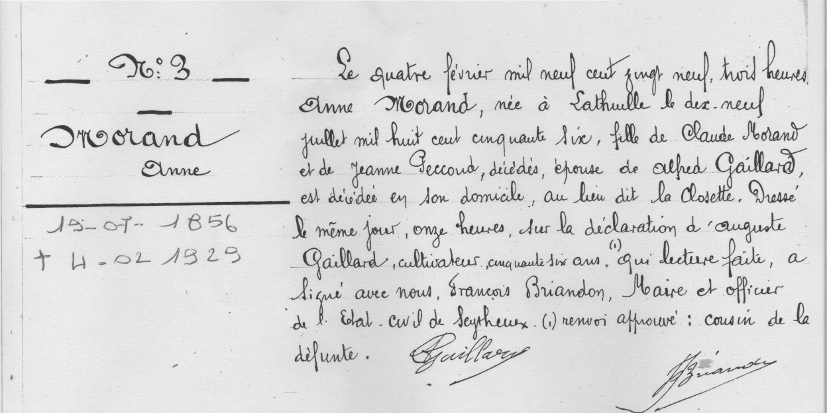 N° 3
Morand
Anne
19-07-1856
† 4-02 1929
Le quatre février mil neuf cent vingt neuf, trois heures,
Anne Morand, née à Lathuille le dix-neuf
juillet mil huit cent cinquante six, fille de Claude Morand
et de Jeanne Peccoud, décédés, épouse de Alfred Gaillard,
est décédée en son domicile, au lieu dit la Closette. Dressé
le même jour, onze heures, sur la déclaration d'Auguste
Gaillard, cultivateur, cinquante six ans, (1) qui lecture faite, a
signé avec nous, François Briandon, Maire et officier
de l'Etat-civil de Seythenex. (1) renvoi approuvé : cousin de la
défunte.
Gaillard